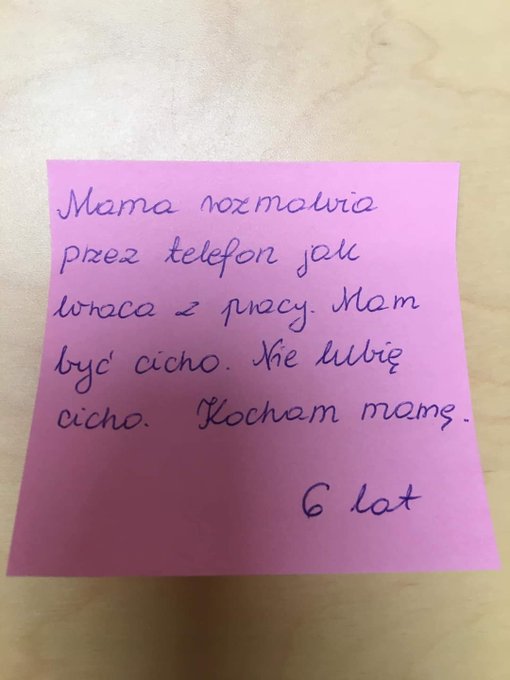 Mama rozmawia
przez telefon jak
wraca z pracy. Mam
być cicho. Nie lubię
cicho. Kocham mamę.
6 lat